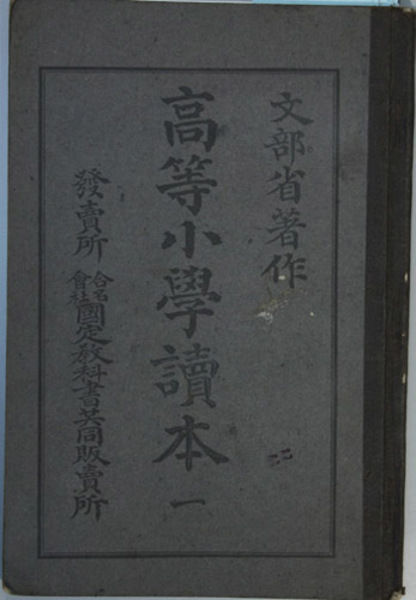 文部省著作
高等小學讀本 一
發賣所 合名會社國定教科書共同販賣所